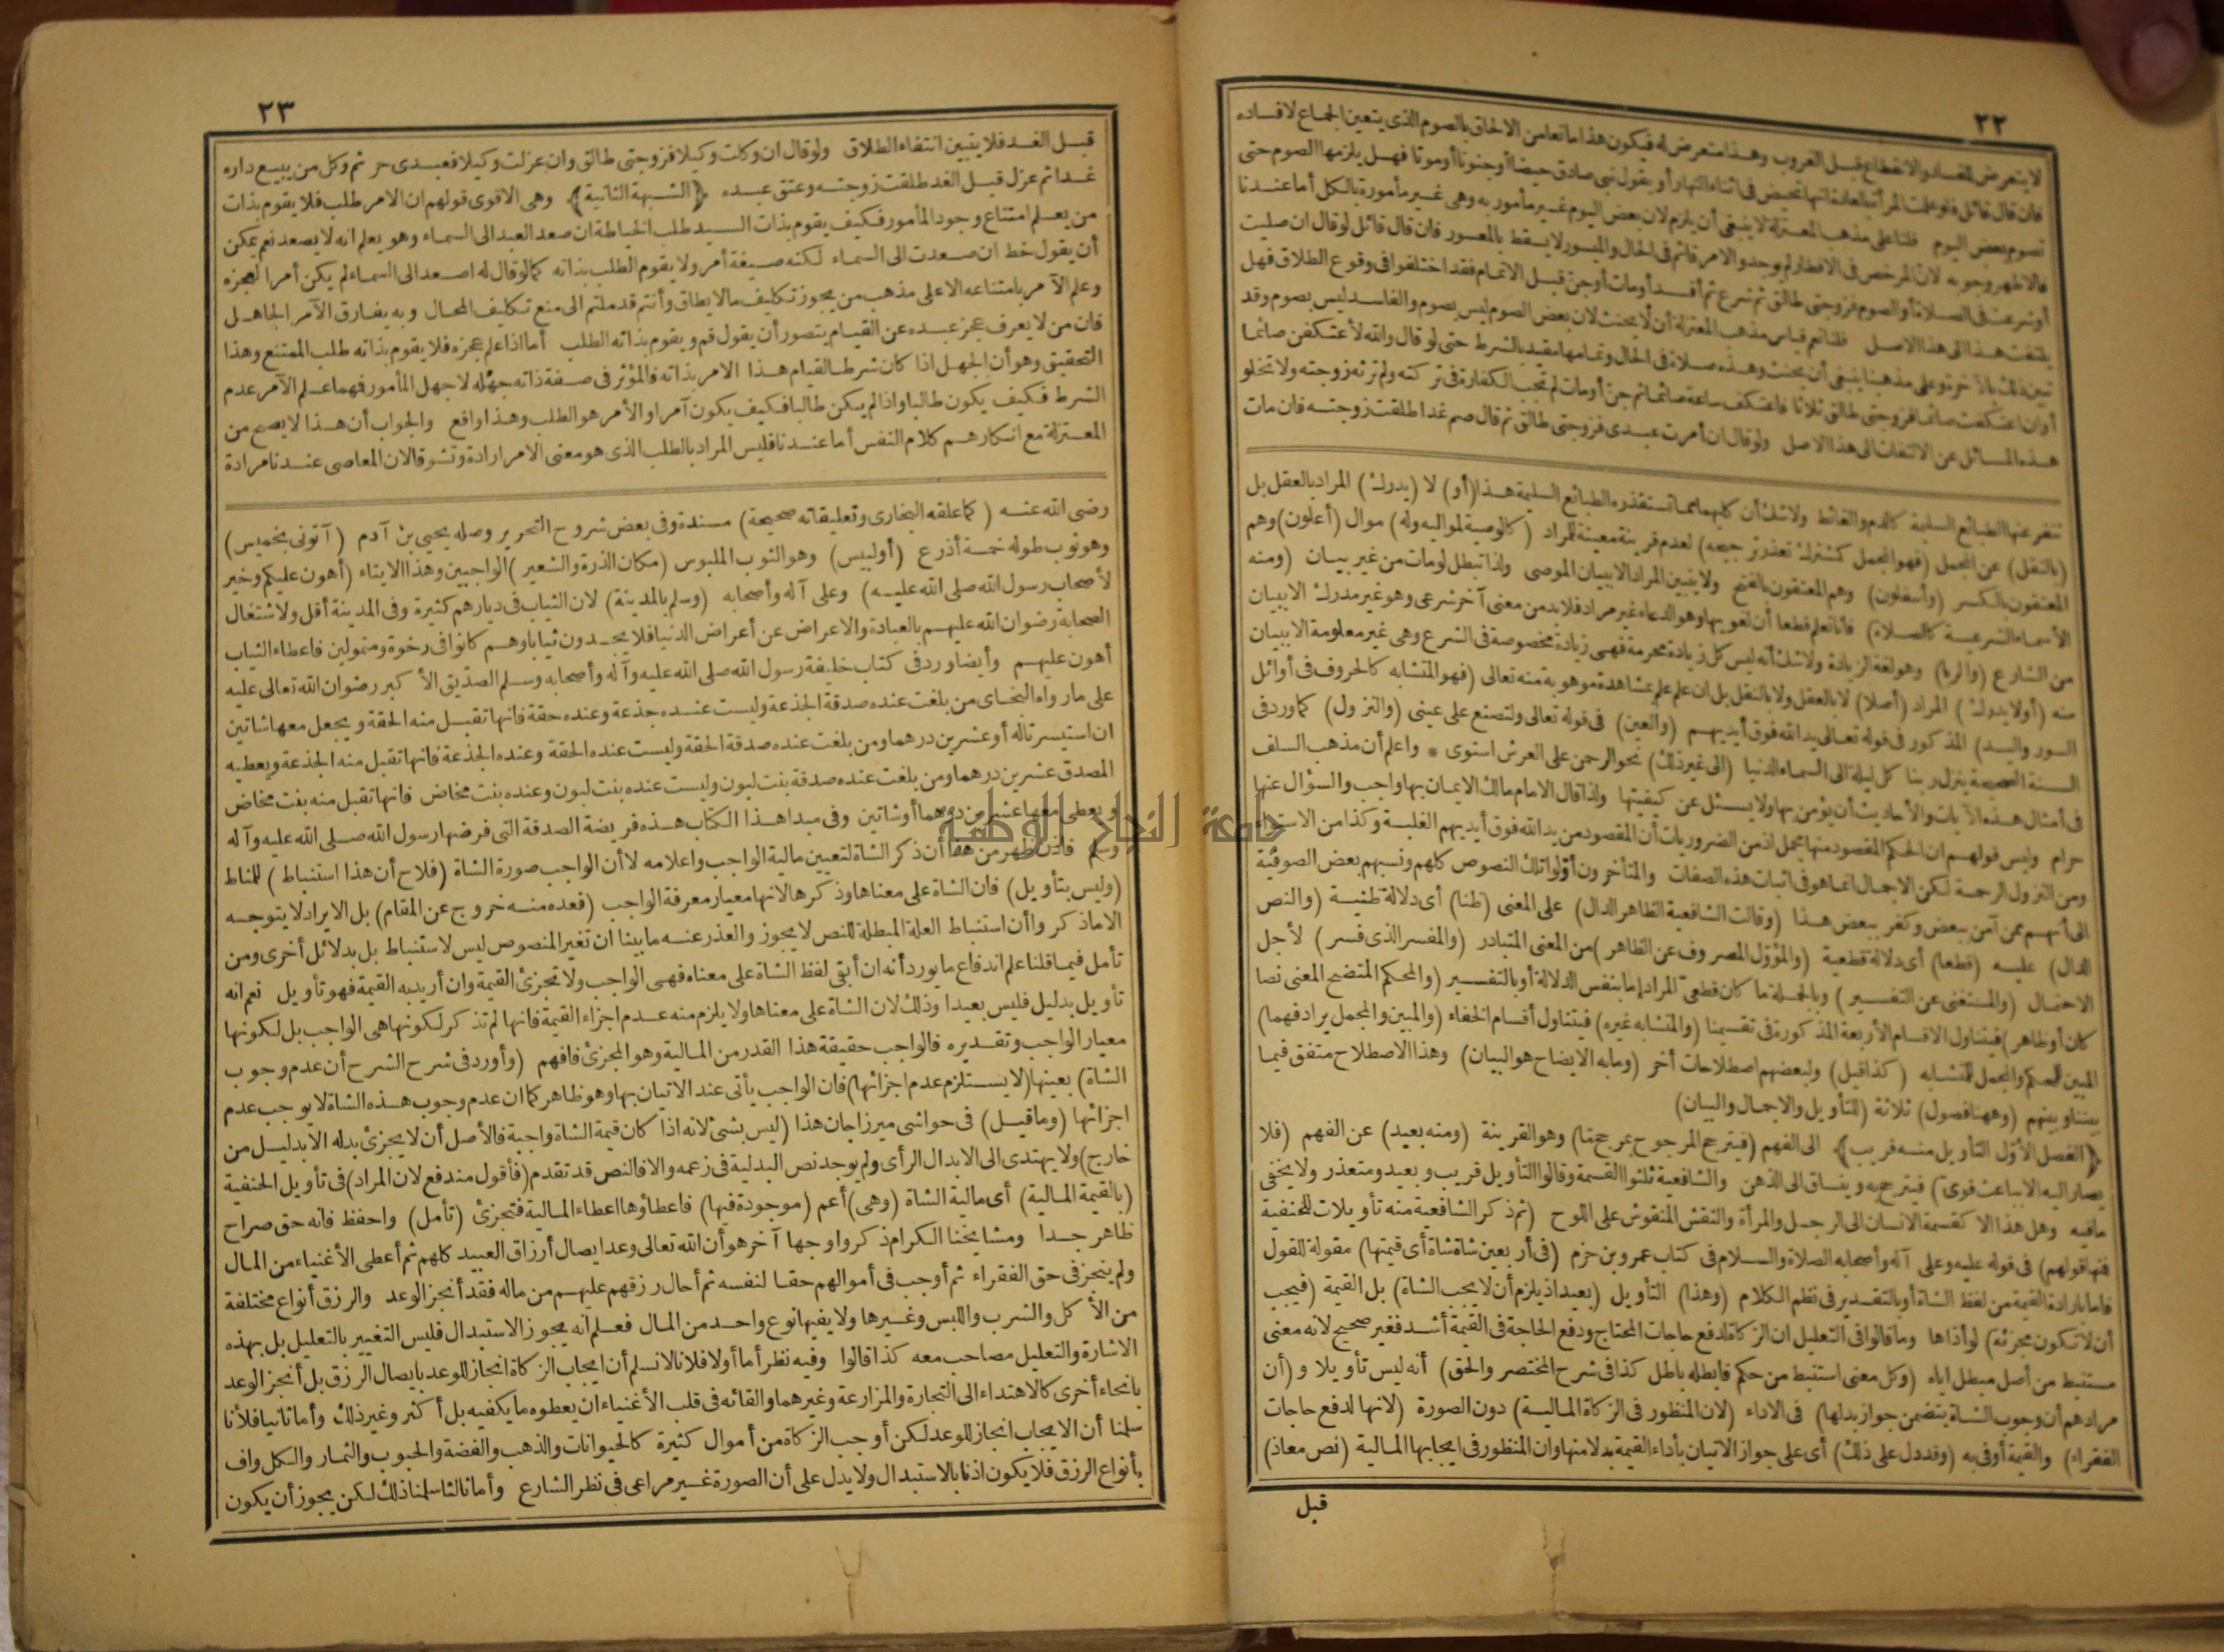 ٢٢
لا يتعرض للفساد والانقطاع قبل الغروب وهذا متعرض له فيكون هذا مانعا من الالحاق بالصوم الذى يتعين الجماع لافساده
فان قال قائل فلو علمت المرأة بالعادة انها تحيض فى اثناء النهار أو بقول نبى صادق حيضا أو جنونا أو موتا فهل يلزمها الصوم حتى
تصوم بعض اليوم قلنا على مذهب المعتزلة لا ينبغى أن يلزم لان بعض اليوم غير مأمور به وهى غير مأمورة بالكل أما عندنا
فالاظهر وجوبه لان المرخص فى الافطار لم يوجد والامر قائم فى الحال والميسور لا يسقط بالمعسور فان قال قائل لو قال ان صليت
أو شرعت فى الصلاة أو الصوم فزوجتى طالق ثم شرع ثم أفسد أو مات أو جن قبل الاتمام فقد اختلفوا فى وقوع الطلاق فهل
يلتفت هذا الى هذا الاصل قلنا نعم قياس مذهب المعتزلة أن لا يحنث لان بعض الصوم ليس بصوم والفاسد ليس بصوم وقد
تبين ذلك بالآخرة وعلى مذهبنا ينبغى أن يحنث وهذه صلاة فى الحال وتمامها مقيد بالشرط حتى لو قال والله لأعتكفن صائما
أو ان اعتكفت صائما فزوجتى طالق ثلاثا فاعتكف ساعة صائما ثم جن أو مات لم تجب الكفارة فى تركته ولم ترثه زوجته ولا تخلو
هذه المسائل عن الالتفات الى هذا الاصل ولو قال ان أمرت عبدى فزوجتى طالق ثم قال صم غدا طلقت زوجته فان مات
تنفر عنها الطبائع السليمة كالدم والغائط ولا شك أن كلهما مما تستقذره الطبائع السليمة هذا (أو) لا (يدرك) المراد بالعقل بل
(بالنقل) عن المجمل (فهو المجمل كمشترك تعذر ترجيحه) لعدم قرينة معينة للمراد (كالوصية لمواليه وله) موال (أعلون) وهم
المعتقون بالكسر (وأسفلون) وهم المعتقون بالفتح ولا يتبين المراد الا ببيان الموصى ولذا تبطل لو مات من غير بيان (ومنه
الأسماء الشرعية كالصلاة) فانا نعلم قطعا أن لغويها وهو الدعاء غير مراد فلا بد من معنى آخر شرعى وهو غير مدرك الا ببيان
من الشارع (والربا) وهو لغة الزيادة ولا شك أنه ليس كل زيادة محرمة فهى زيادة مخصوصة فى الشرع وهى غير معلومة الا ببيان
منه (أولا يدرك) المراد (أصلا) لا بالعقل ولا بالنقل بل ان علم علم بمشاهدة موهوبة منه تعالى (فهو المتشابه كالحروف فى أوائل
السور واليد) المذكور فى قوله تعالى يد الله فوق أيديهم (والعين) فى قوله تعالى ولتصنع على عينى (والنزول) كما ورد فى
السنة الصحيحة ينزل ربنا كل ليلة الى السماء الدنيا (الى غير ذلك) نحو الرحمن على العرش استوى * واعلم أن مذهب السلف
فى أمثال هذه الآيات والأحاديث أن يؤمن بها ولا يسئل عن كيفيتها ولذا قال الامام مالك الايمان بها واجب والسؤال عنها
حرام وليس قولهم ان الحكم المقصود منها مجمل اذ من الضروريات أن المقصود من يد الله فوق أيديهم الغلبة وكذا من الاستواء
ومن النزول الرحمة لكن الاجمال انما هو فى اثبات هذه الصفات والمتأخرون أوّلوا تلك النصوص كلهم ونسبهم بعض الصوفية
الى أنهم ممن آمن ببعض وكفر ببعض هذا (وقالت الشافعية الظاهر الدال) على المعنى (ظنا) أى دلالة ظنية (والنص
الدال) عليه (قطعا) أى دلالة قطعية (والمؤوّل المصروف عن الظاهر) من المعنى المتبادر (والمفسر الذى فسر) لأجل
الاحتمال (والمستغنى عن التفسير) وبالجملة ما كان قطعىّ المراد إما بنفس الدلالة أو بالتفسير (والمحكم المتضح المعنى نصا
كان أو ظاهر) فيتناول الاقسام الأربعة المذكورة فى تقسيمنا (والمتشابه غيره) فيتناول أقسام الخفاء (والمبين والمجمل يرادفهما)
المبين للمحكم والمجمل للمتشابه (كذا قيل) ولبعضهم اصطلاحات أخر (وما به الايضاح هو البيان) وهذا الاصطلاح متفق فيما
بيننا وبينهم (وههنا فصول) ثلاثة (للتأويل والاجمال والبيان)
﴿الفصل الأوّل التأويل منه قريب﴾ الى الفهم (فيترجح المرجوح بمرجح ما) وهو القرينة (ومنه بعيد) عن الفهم (فلا
يصار اليه الا بباعث قوىّ) فيترجح به وينساق الى الذهن والشافعية ثلثوا القسمة وقالوا التأويل قريب وبعيد ومتعذر ولا يخفى
مافيه وهل هذا الا كقسمة الانسان الى الرجل والمرأة والنقش المنقوش على اللوح (ثم ذكر الشافعية منه تأويلات للحنفية
فمنها قولهم) فى قوله عليه وعلى آله وأصحابه الصلاة والسلام فى كتاب عمرو بن حزم (فى أربعين شاة شاة أى قيمتها) مقولة للقول
فاما بارادة القيمة من لفظ الشاة أو بالتقدير فى نظم الكلام (وهذا) التأويل (بعيد اذ يلزم أن لا يجب الشاة) بل القيمة (فيجب
أن لا تكون مجزئة) لو أداها وما قالوا فى التعليل ان الزكاة لدفع حاجات المحتاج ودفع الحاجة فى القيمة أشد فغير صحيح لانه معنى
مستنبط من أصل مبطل اياه (وكل معنى استنبط من حكم فابطله باطل كذا فى شرح المختصر والحق) أنه ليس تأويلا و (أن
مرادهم أن وجوب الشاة يتضمن جواز بدلها) فى الاداء (لان المنظور فى الزكاة المالية) دون الصورة (لانها لدفع حاجات
الفقراء) والقيمة أوفى به (وقد دل على ذلك) أى على جواز الاتيان بأداء القيمة بدلا منها وان المنظور فى ايجابها المالية (نص معاذ)
قبل
٢٣
قبل الغد فلا يتبين انتفاء الطلاق ولو قال ان وكلت وكيلا فزوجتى طالق وان عزلت وكيلا فعبدى حر ثم وكل من يبيع داره
غدا ثم عزل قبل الغد طلقت زوجته وعتق عبده ﴿الشبهة الثانية﴾ وهى الاقوى قولهم ان الامر طلب فلا يقوم بذات
من يعلم امتناع وجود المأمور فكيف يقوم بذات السيد طلب الخياطة ان صعد العبد الى السماء وهو يعلم انه لا يصعد نعم يمكن
أن يقول خط ان صعدت الى السماء لكنه صيغة أمر ولا يقوم الطلب بذاته كما لو قال له اصعد الى السماء لم يكن أمرا لعجزه
وعلم الآمر بامتناعه الا على مذهب من يجوز تكليف ما لا يطاق وأنتم قد ملتم الى منع تكليف المحال وبه يفارق الآمر الجاهل
فان من لا يعرف عجز عبده عن القيام يتصور أن يقول قم ويقوم بذاته الطلب أما اذا علم عجزه فلا يقوم بذاته طلب الممتنع وهذا
التحقيق وهو أن الجهل اذا كان شرطا لقيام هذا الامر بذاته فالمؤثر فى صفة ذاته جهله لا جهل المأمور فهما علم الآمر عدم
الشرط فكيف يكون طالبا واذا لم يكن طالبا فكيف يكون آمرا والأمر هو الطلب وهذا واقع والجواب أن هذا لا يصح من
المعتزلة مع انكارهم كلام النفس أما عندنا فليس المراد بالطلب الذى هو معنى الامر ارادة وتشوقا لان المعاصى عندنا مرادة
رضى الله عنه (كما علقه البخارى وتعليقاته صحيحة) مسندة وفى بعض شروح التحرير وصله يحيى بن آدم (آتونى بخميس)
وهو ثوب طوله خمسة أذرع (أو لبيس) وهو الثوب الملبوس (مكان الذرة والشعير) الواجبين وهذا الايتاء (أهون عليكم وخير
لأصحاب رسول الله صلى الله عليه) وعلى آله وأصحابه (وسلم بالمدينة) لان الثياب فى ديارهم كثيرة وفى المدينة أقل ولاشتغال
الصحابة رضوان الله عليهم بالعبادة والاعراض عن أعراض الدنيا فلا يجدون ثيابا وهم كانوا فى رخوة ومتمولين فاعطاء الثياب
أهون عليهم وأيضا ورد فى كتاب خليفة رسول الله صلى الله عليه وآله وأصحابه وسلم الصدّيق الأكبر رضوان الله تعالى عليه
على ما رواه البخارى من بلغت عنده صدقة الجذعة وليست عنده جذعة وعنده حقة فانها تقبل منه الحقة ويجعل معها شاتين
ان استيسرتا له أو عشرين درهما ومن بلغت عنده صدقة الحقة وليست عنده الحقة وعنده الجذعة فانها تقبل منه الجذعة ويعطيه
المصدق عشرين درهما ومن بلغت عنده صدقة بنت لبون وليست عنده بنت لبون وعنده بنت مخاض فانها تقبل منه بنت مخاض
ويعطى معها عشرين درهما أو شاتين وفى مبدا هذا الكتاب هذه فريضة الصدقة التى فرضها رسول الله صلى الله عليه وآله
وسلم فاذن ظهر من هذا أن ذكر الشاة لتعيين مالية الواجب واعلامه لا أن الواجب صورة الشاة (فلاح أن هذا استنباط) للمناط
(وليس بتأويل) فان الشاة على معناها وذكرها لانها معيار معرفة الواجب (فعده منه خروج عن المقام) بل الايراد لا يتوجه
الا ما ذكروا أن استنباط العلة المبطلة للنص لا يجوز والعذر عنه ما بينا ان تغير المنصوص ليس لاستنباط بل بدلائل أخرى ومن
تأمل فيما قلنا علم اندفاع ما يورد أنه ان أبقى لفظ الشاة على معناه فهى الواجب ولا تجزئ القيمة وان أريد به القيمة فهو تأويل نعم انه
تأويل بدليل فليس بعيدا وذلك لان الشاة على معناها ولا يلزم منه عدم اجزاء القيمة فانها لم تذكر لكونها هى الواجب بل لكونها
معيار الواجب وتقديره فالواجب حقيقة هذا القدر من المالية وهو المجزئ فافهم (وأورد فى شرح الشرح أن عدم وجوب
الشاة) بعينها (لا يستلزم عدم اجزائها) فان الواجب يأتى عند الاتيان بها وهو ظاهر كما ان عدم وجوب هذه الشاة لا يوجب عدم
اجزائها (وما قيل) فى حواشى ميرزا جان هذا (ليس بشئ لانه اذا كان قيمة الشاة واجبة فالأصل أن لا يجزئ بدله الا بدليل من
خارج) ولا يهتدى الى الابدال الرأى ولم يوجد نص البدلية فى زعمه والا فالنص قد تقدم (فأقول مندفع لان المراد) فى تأويل الحنفية
(بالقيمة المالية) أى مالية الشاة (وهى) أعم (موجودة فيها) فاعطاؤها اعطاء المالية فتجزئ (تأمل) واحفظ فانه حق صراح
ظاهر جدا ومشايخنا الكرام ذكروا وجها آخر هو أن الله تعالى وعد ايصال أرزاق العبيد كلهم ثم أعطى الأغنياء من المال
ولم ينجز فى حق الفقراء ثم أوجب فى أموالهم حقا لنفسه ثم أحال رزقهم عليهم من ماله فقد أنجز الوعد والرزق أنواع مختلفة
من الأكل والشرب واللبس وغيرها ولا يفيها نوع واحد من المال فعلم أنه يجوز الاستبدال فليس التغيير بالتعليل بل بهذه
الاشارة والتعليل مصاحب معه كذا قالوا وفيه نظر أما أولا فلانا لا نسلم أن ايجاب الزكاة انجاز للوعد بايصال الرزق بل أنجز الوعد
بانحاء أخرى كالاهتداء الى التجارة والمزارعة وغيرهما والقائه فى قلب الأغنياء ان يعطوه ما يكفيه بل أكثر وغير ذلك وأما ثانيا فلأنا
سلمنا أن الايجاب انجاز للوعد لكن أوجب الزكاة من أموال كثيرة كالحيوانات والذهب والفضة والحبوب والثمار والكل واف
بأنواع الرزق فلا يكون اذنا بالاستبدال ولا يدل على أن الصورة غير مراعى فى نظر الشارع وأما ثالثا سلمنا ذلك لكن يجوز أن يكون
جامعة النجاح الوطنية